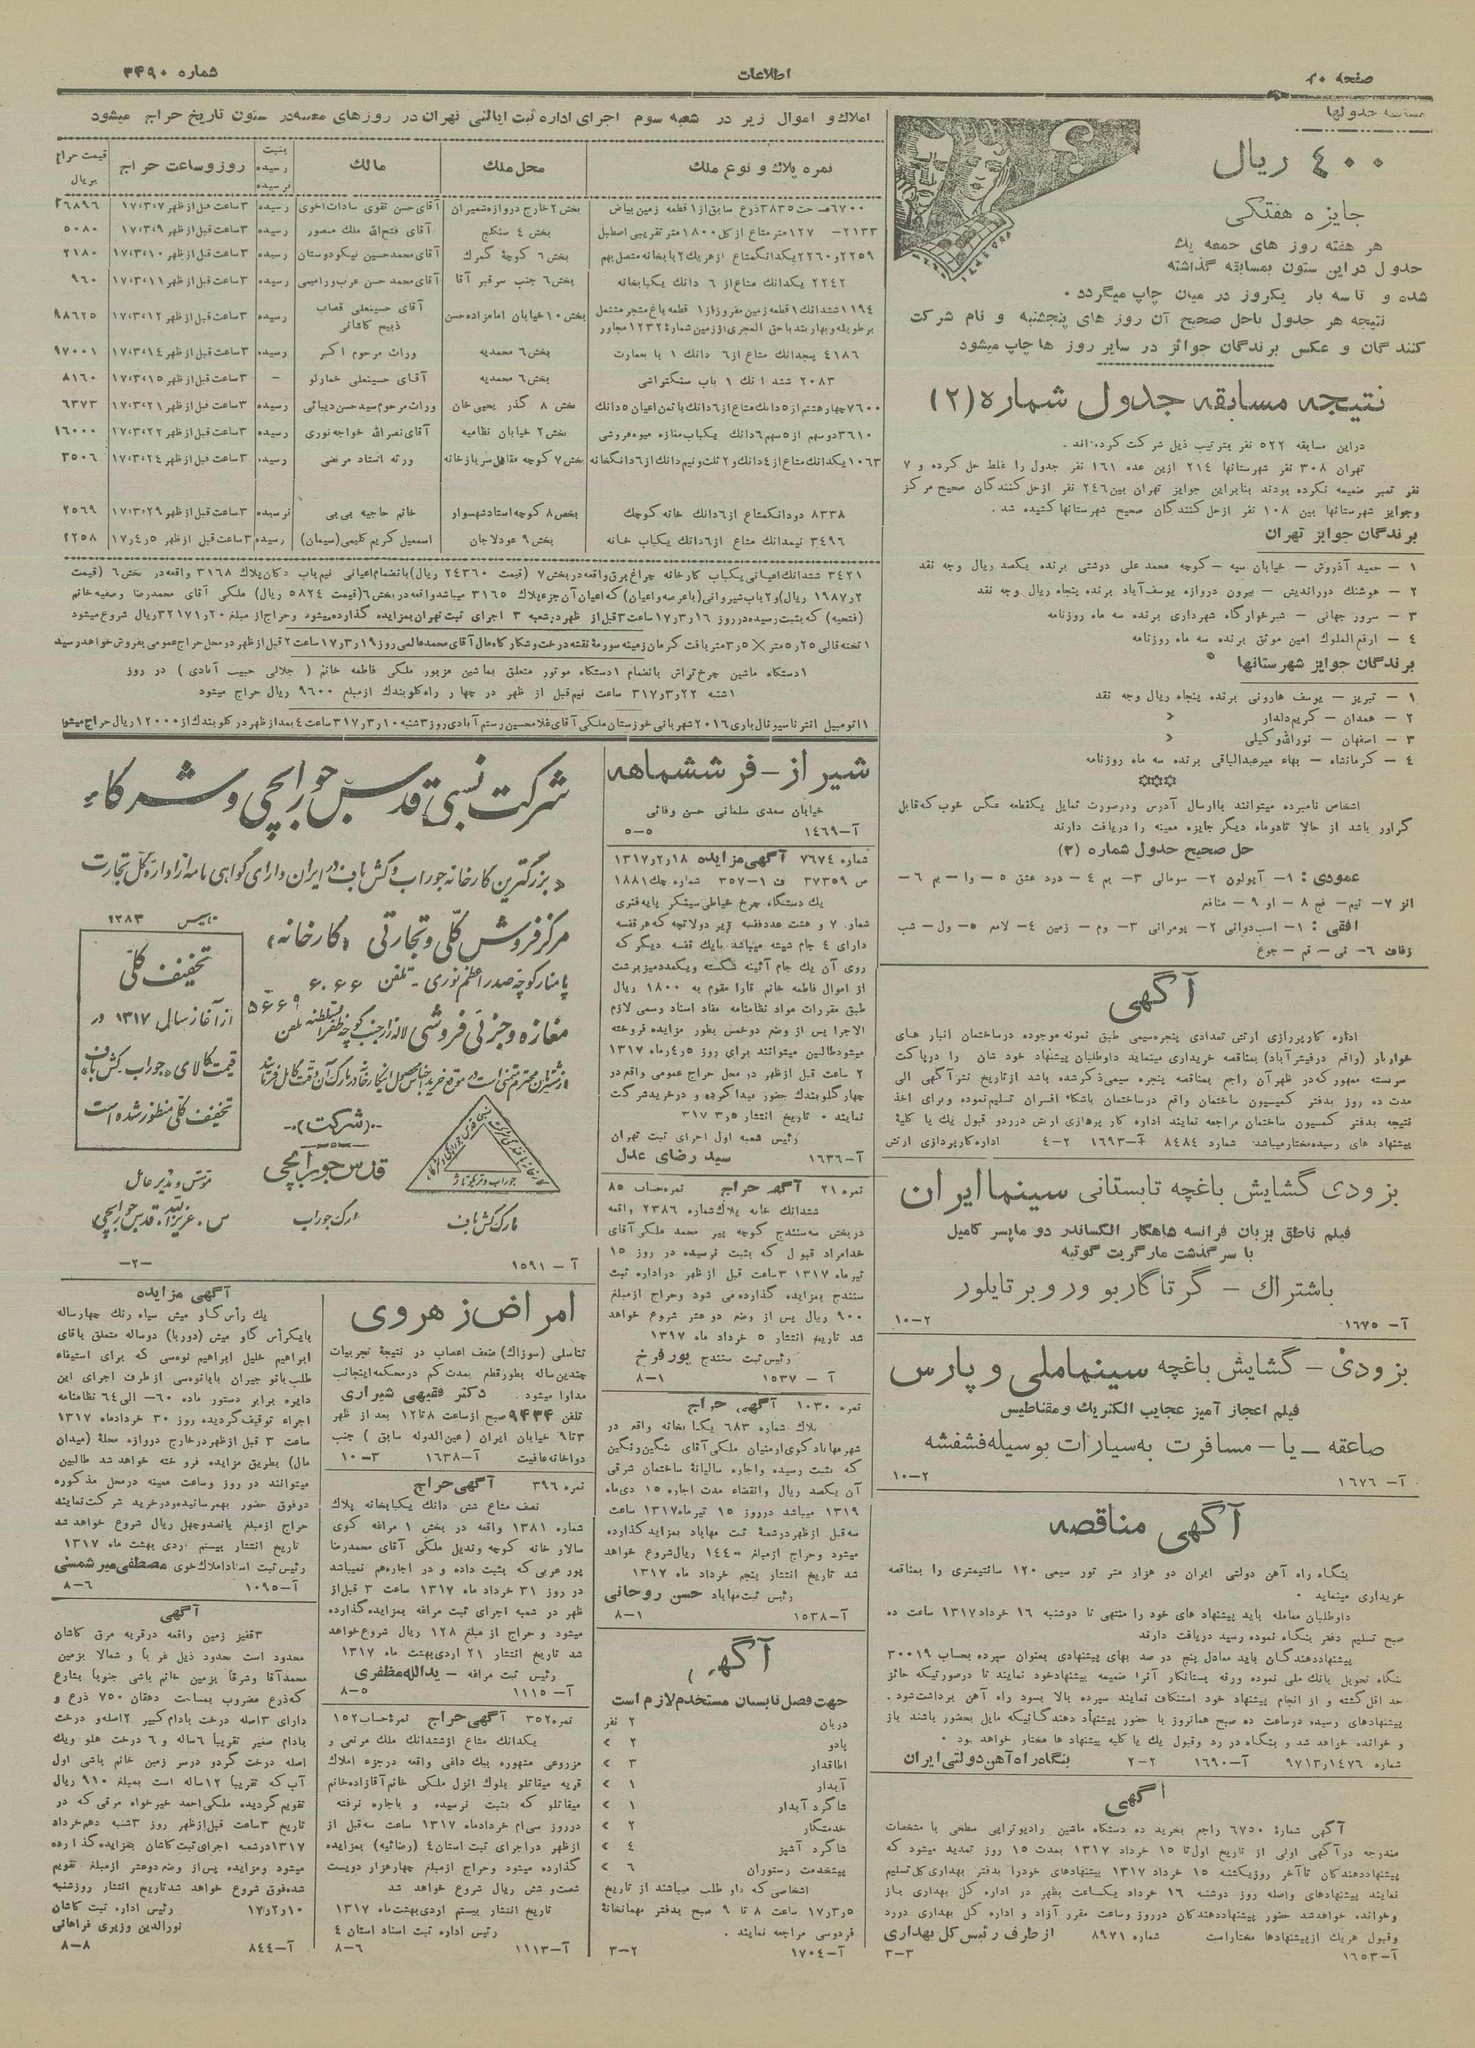 صفحه ۲۰
اطلاعات
شماره ۳۴۹۰
مسابقه جدولها
۴۰۰ ریال
جایزه هفتگی
هر هفته روز های جمعه یك
جدول در این ستون بمسابقه گذاشته
شده و تا سه بار یکروز در میان چاپ میگردد .
نتیجه هر جدول با حل صحیح آن روز های پنجشنبه و نام شرکت
کنندگان و عکس برندگان جوائز در سایر روز ها چاپ میشود
نتیجه مسابقه جدول شماره (۲)
دراین مسابقه ۵۲۲ نفر بترتیب ذیل شرکت کرده‌اند .
تهران ۳۰۸ نفر شهرستانها ۲۱۴ ازین عده ۱۶۱ نفر جدول را غلط حل کرده و ۷
نفر تمبر ضمیمه نکرده بودند بنابراین جوایز تهران بین ۲۴۶ نفر ازحل کنندگان صحیح مرکز
وجوایز شهرستانها بین ۱۰۸ نفر ازحل کنندگان صحیح شهرستانها کشیده شد .
برندگان جوایز تهران
۱ – حمید آذروش – خیابان سپه – کوچه محمد علی درشتی برنده یکصد ریال وجه نقد
۲ – هوشنك دوراندیش – بیرون دروازه یوسف‌آباد برنده پنجاه ریال وجه نقد
۳ – سرور جهانی – شیرخوارگاه شهرداری برنده سه ماه روزنامه
۴ – ارفع‌الملوك امین موثق برنده سه ماه روزنامه
برندگان جوایز شهرستانها
۱ – تبریز – یوسف هارونی برنده پنجاه ریال وجه نقد
۲ – همدان – کریم دلدار »
۳ – اصفهان – نورالله وکیلی »
۴ – کرمانشاه – بهاء میرعبدالباقی برنده سه ماه روزنامه
اشخاص نامبرده میتوانند باارسال آدرس ودرصورت تمایل یکقطعه عکس خوب که قابل
گراور باشد از حالا تادوماه دیگر جایزه معینه را دریافت دارند
حل صحیح جدول شماره (۲)
عمودی : ۱– آپولون ۲– سومالی ۳– یم ۴– درد عشق ۵– وا– یم ۶–
انز ۷– تیم– فج ۸– او ۹– منافع
افقی : ۱– اسب‌دوانی ۲– پومرانی ۳– وم– زمین ۴– لامع ۵– ول– شب
زفاف ۶– نی– تم– جوغ
آگهی
اداره کارپردازی ارتش تعدادی پنجره‌سیمی طبق نمونه موجوده درساختمان انبار های
خواربار (واقع درقیشرآباد) بمناقصه خریداری مینماید داوطلبان پیشنهاد خود شان را درپاکت
سربسته ممهور که در ظهرآن راجع بمناقصه پنجره سیمی ذکر شده باشد ازتاریخ نشرآگهی الی
مدت ده روز بدفتر کمیسیون ساختمان واقع درساختمان باشگاه افسران تسلیم نموده وبرای اخذ
نتیجه بدفتر کمسیون ساختمان مراجعه نمایند اداره کار پردازی ارتش دررد و قبول یك یا کلیهٔ
پیشنهاد های رسیده مختارمیباشد. شماره ۸۴۸۴ آ–۱۶۹۳ ۲–۴ اداره کارپردازی ارتش
بزودی گشایش باغچه تابستانی سینما ایران
فیلم ناطق بزبان فرانسه شاهکار الکساندر دو ما پسر کامیل
یا سرگذشت مارگریت گوتیه
باشتراك – گرتا گاربو و روبرتایلور
آ– ۱۶۷۵ ۲–۱۰
بزودی – گشایش باغچه سینما ملی و پارس
فیلم اعجاز آمیز عجایب الکتریك و مقناطیس
صاعقه – یا – مسافرت به سیارات بوسیله فشفشه
آ– ۱۶۷۶ ۲–۱۰
آگهی مناقصه
بنگاه راه آهن دولتی ایران دو هزار متر تور سیمی ۱۲۰ سانتیمتری را بمناقصه
خریداری مینماید .
داوطلبان معامله باید پیشنهاد های خود را منتهی تا دوشنبه ۱۶ خرداد۱۳۱۷ ساعت ده
صبح تسلیم دفتر بنگاه نموده رسید دریافت دارند
پیشنهاددهندگان باید معادل پنج در صد بهای پیشنهادی بعنوان سپرده بحساب ۳۰۰۱۹
بنگاه تحویل بانك ملی نموده ورقه بستانکار آنرا ضمیمه پیشنهادخود نمایند تا درصورتیکه حائز
حد اقل گشته و از انجام پیشنهاد خود استنکاف نمایند سپرده بالا بسود راه آهن برداشت شود.
پیشنهادهای رسیده درساعت ده صبح همانروز با حضور پیشنهاد دهندگانیکه مایل بحضور باشند باز
و خوانده خواهد شد و بنگاه در رد وقبول یك یا کلیه پیشنهاد ها مختار خواهد بود .
شماره ۹۷۱۳٫۱۴۷۶ آ–۱۶۹۰ ۲–۲ بنگاه راه آهن دولتی ایران
آگهی
آگهی شمارهٔ ۶۷۵۰ راجع بخرید ده دستگاه ماشین رادیوتراپی سطحی با مشخصات
مندرجه درآگهی اولی از تاریخ اول تا ۱۵ خرداد ۱۳۱۷ بمدت ۱۵ روز تمدید میشود که
پیشنهاددهندگان تاآخر روزیکشنبه ۱۵ خرداد ۱۳۱۷ پیشنهادهای خودرا بدفتر بهداری کل تسلیم
نمایند پیشنهادهای واصله روز دوشنبه ۱۶ خرداد یکساعت بظهر در اداره کل بهداری باز
وخوانده خواهدشد حضور پیشنهاددهندگان درروز وساعت مقرر آزاد و اداره کل بهداری دررد
وقبول هریك ازپیشنهادها مختاراست شماره ۸۹۷۱ از طرف رئیس کل بهداری
آ–۱۶۵۳ ۳–۳
املاك و اموال زیر در شعبه سوم اجرای اداره ثبت ایالتی تهران در روزهای معینه‌در ستون تاریخ حراج میشود
نمره پلاك و نوع ملك | محل ملك | مالك | بثبت رسیده نرسیده | روز و ساعت حراج | قیمت حراج بریال
۶۷۰۰ صحت ۳۸۳۵ ذرع سابق از ۱ قطعه زمین بیاض | بخش ۲ خارج دروازه شمیران | آقای حسن تقوی سادات اخوی | رسیده | ۳ساعت قبل از ظهر ۱۷٫۳٫۷ | ۲۶۸۹۶
۲۱۳۳– ۱۲۷ متر مشاع از کل ۱۸۰۰ متر تقریبی اصطبل | بخش ۴ سنگلج | آقای فتح‌الله ملك منصور | رسیده | ۳ساعت قبل از ظهر ۱۷٫۳٫۹ | ۵۰۸۰
۲۲۵۹ و ۲۲۶۰ یکدانگ مشاع از هریك ۲ باب خانه متصل بهم | بخش ۶ کوچه گمرك | آقای محمدحسین نیکو دوستان | رسیده | ۳ساعت قبل از ظهر ۱۷٫۳٫۱۰ | ۲۱۸۰
۲۲۴۲ یکدانك مشاع از ۶ دانك یکبابخانه | بخش ۶ جنب سرقبر آقا | آقای محمد حسن عرب ورامینی | رسیده | ۳ساعت قبل از ظهر ۱۷٫۳٫۱۱ | ۹۶۰
۱۱۹۴ ششدانك ۱ قطعه زمین مفروز از ۱ قطعه باغ مشجر مشتمل
برطویله و بهاربند باحق المجری از زمین شمارهٔ ۱۲۳۲ مجاور | بخش ۱۰ خیابان امامزاده حسن | آقای حسینعلی قصاب ذبیح کاشانی | رسیده | ۳ساعت قبل از ظهر ۱۷٫۳٫۱۲ | ۹۸۶۲۵
۴۱۸۶ پنجدانك مشاع از۶ دانك ۱ باب عمارت | بخش ۶ محمدیه | وراث مرحوم اکبر | رسیده | ۳ساعت قبل از ظهر ۱۷٫۳٫۱۴ | ۹۷۰۰۱
۲۰۸۳ ششدانك ۱ باب سنگتراشی | بخش ۶ محمدیه | آقای حسینعلی خمارلو | – | ۳ساعت قبل از ظهر ۱۷٫۳٫۱۵ | ۸۱۶۰
۷۶۰۰ چهار هشتم از ۵ دانك مشاع از ۶ دانك باثمن اعیان ۵ دانك | بخش ۸ گذر یحیی خان | وراث مرحوم سید حسن دیبائی | رسیده | ۳ساعت قبل از ظهر ۱۷٫۳٫۲۱ | ۶۳۷۳
۳۶۱۰ دوسهم از ۵ سهم ۶ دانك یکباب مغازه میوه فروشی | بخش ۲ خیابان نظامیه | آقای نصرالله خواجه نوری | رسیده | ۳ساعت قبل از ظهر ۱۷٫۳٫۲۲ | ۱۶۰۰۰
۱۰۶۳ یکدانك مشاع از ۴ دانك و ۲ ثلث و نیم دانك از ۶ دانگ خانه | بخش ۷ کوچه مقابل سربازخانه | ورثه استاد مرتضی | رسیده | ۳ساعت قبل از ظهر ۱۷٫۳٫۲۴ | ۳۵۰۶
۸۳۳۸ دودانگ مشاع از ۶ دانك خانه کوچك | بخش ۸ کوچه استاد شهسوار | خانم حاجیه بی بی | نرسیده | ۳ساعت قبل از ظهر ۱۷٫۳٫۲۹ | ۲۵۶۹
۳۴۹۶ نیمدانك مشاع از ۶ دانك یکباب خانه | بخش ۹ عودلاجان | اسمعیل کریم کلیمی (سیمان) | رسیده | ۳ساعت قبل از ظهر ۱۷٫۴٫۵ | ۱۲۵۸
۳۴۲۱ ششدانك اعیانی یکباب کارخانه چراغ برق واقعه در بخش ۷ (قیمت ۲۴۳۶۰ ریال) باانضمام اعیانی نیم باب دکان پلاك ۳۱۶۸ واقعه در بخش ۶ (قیمت
۱۹۸۷٫۲ ریال) و ۲ باب شیروانی (باعرصه واعیان) که اعیان آن جزء پلاك ۳۱۶۵ میباشد واقعه در بخش ۶ (قیمت ۵۸۲۴ ریال) ملکی آقای محمدرضا وصفیه خانم
(فتحیه) که بثبت رسیده در روز ۱۷٫۳٫۱۶ ساعت ۳ قبل از ظهر در شعبه ۳ اجرای ثبت تهران بمزایده گذارده میشود و حراج از مبلغ ۳۲۱۷۱٫۲۰ ریال شروع میشود
۱ تخته قالی ۵٫۲۵ متر × ۳٫۵ متر بافت کرمان زمینه سورمهٔ نقشه درخت و شکارگاه مال آقای محمد عالمی روز ۱۷٫۳٫۱۹ ساعت ۲ قبل از ظهر در محل حراج عمومی بفروش خواهد رسید
۱ دستگاه ماشین چرخ تراش بانضمام ۱ دستگاه موتور متعلق بماشین مزبور ملکی فاطمه خانم ( جلالی حبیب آبادی ) در روز
۱شنبه ۳۱۷٫۳٫۲۲ ساعت نیم قبل از ظهر در چهار راه گلوبندك ازمبلغ ۹۶۰۰ ریال حراج میشود
۱ اتومبیل انترناسیونال باری ۲۰۱۶ شهربانی خوزستان ملکی آقای غلامحسین رستم آبادی روز ۳شنبه ۳۱۷٫۳٫۱۰ ساعت ۴ بعد از ظهر در گلوبندك از ۱۲۰۰۰ ریال حراج میشود
شیراز – فر ششماهه
خیابان سعدی سلمانی حسن وفائی
آ–۱۴۶۹ ۵–۵
شماره ۷۶۷۴ آگهی مزایده ۱۳۱۷٫۲٫۱۸
ص ۳۷۳۵۹ ف ۱–۳۵۷ شماره چك ۱۸۸۱
یك دستگاه چرخ خیاطی سینگر پایه فنری
شمار. ۷ و هشت عددقفسه زیر دولابچه که هرقفسه
دارای ۴ جام شیشه میباشد بایك قفسه دیگر که
روی آن یك جام آئینه شکسته ویکعدد میز برشت
از اموال فاطمه خانم قارا مقوم به ۱۸۰۰ ریال
طبق مقررات مواد نظامنامه مفاد اسناد رسمی لازم
الاجرا پس از وضع دوخمس بطور مزایده فروخته
میشود طالبین میتوانند برای روز ۵٫۴ ماه ۱۳۱۷
۲ ساعت قبل ازظهر در محل حراج عمومی واقع در
چهارگلوبندك حضور پیدا کرده و درخرید شرکت
نمایند . تاریخ انتشار ۳۱۷٫۳٫۵
رئیس شعبه اول اجرای ثبت تهران
آ–۱۶۳۶ سید رضای عدل
نمره ۲۱ آگهی حراج نمره حساب ۸۵
ششدانك خانه پلاك شماره ۲۳۸۶ واقعه
در بخش سه سنندج کوچه پیر محمد ملکی آقای
خدامراد قبول که بثبت نرسیده در روز ۱۵
تیر ماه ۱۳۱۷ ۳ساعت قبل از ظهر در اداره ثبت
سنندج بمزایده گذارده می شود وحراج ازمبلغ
۹۰۰ ریال پس از وضع دو عشر شروع خواهد
شد تاریخ انتشار ۵ خرداد ماه ۱۳۱۷
رئیس ثبت سنندج پورفرخ
آ – ۱۵۳۷ ۱–۸
نمره ۱۰۳۰ آگهی حراج
پلاك شماره ۶۸۳ یکبابخانه واقعه در
شهر مهاباد کوی ارمنیان ملکی آقای سنگین رنگین
که بثبت رسیده واجاره سالیانهٔ ساختمان شرقی
آن یکصد ریال وانقضاء مدت اجاره ۱۵ دی‌ماه
۱۳۱۹ میباشد درروز ۱۵ تیرماه۱۳۱۷ ساعت
سه قبل ازظهر درشعبهٔ ثبت مهاباد بمزایده گذارده
میشود وحراج ازمبلغ ۱۴۴۰۰ ریال شروع خواهد
شد تاریخ انتشار پنجم خرداد ماه ۱۳۱۷
رئیس ثبت مهاباد حسن روحانی
آ–۱۵۳۸ ۱–۸
آگهی
جهت فصل تابستان مستخدم لازم است
دربان ۲ نفر
پادو ۲ »
اطاقدار ۳ »
آبدار ۱ »
شاگرد آبدار ۱ »
خدمتگار ۲ »
شاگرد آشپز ۴ »
پیشخدمت رستوران ۶ »
اشخاصی که دار طلب میباشند از تاریخ
۱۷٫۳٫۵ ساعت ۸ تا ۹ صبح بدفتر مهمانخانهٔ
فردوسی مراجعه نمایند .
آ–۱۷۰۴ ۲–۳
شرکت نسبی قدس جورابچی و شرکاء
«بزرگترین کارخانه جوراب و کش باف در ایران دارای گواهی نامه از اداره کل تجارت
مرکز فروش کلی و تجارتی «کارخانه»
پامنار کوچه صدراعظم نوری – تلفن ۶۰۶۶
مغازه و جزئی فروشی لاله‌زار جنب کوچه ظفرالسلطنه تلفن ۵۶۶۹
–(شرکت)–
قدس جورابچی
مارك جوراب
جوراب و تریکوتاژ
مارك کش باف
تأسیس ۱۲۸۳
تخفیف کلی
از آغاز سال ۱۳۱۷ در
قیمت کالای «جوراب کش باف»
تخفیف کلی منظور شده است
مؤسس و مدیر عامل
س. عزیزالله قدس جورابچی
آ – ۱۵۹۱ –۲–
امراض زهروی
تناسلی (سوزاك) ضعف اعصاب در نتیجهٔ تجربیات
چندین ساله بطورقطع بمدت کم درمحکمه اینجانب
مداوا میشود . دکتر فقیهی شیرازی
تلفن ۹۴۳۴ صبح ازساعت ۸ تا ۱۲ بعد از ظهر
۳ تا ۹ خیابان ایران (عین‌الدوله سابق ) جنب
دواخانه عافیت آ–۱۶۳۸ ۳–۱۰
نمره ۳۹۶ آگهی حراج
نصف مشاع شش دانك یکبابخانه پلاك
شماره ۱۳۸۱ واقعه در بخش ۱ مراغه کوی
سالار خانه کوچه وندیل ملکی آقای محمدرضا
پور عربی که بثبت داده و در اجاره‌هم نمیباشد
در روز ۳۱ خرداد ماه ۱۳۱۷ ساعت ۳ قبل از
ظهر در شعبه اجرای ثبت مراغه بمزایده گذارده
میشود و حراج از مبلغ ۱۲۸ ریال شروع خواهد
شد تاریخ انتشار ۲۱ اردیبهشت ماه ۱۳۱۷
رئیس ثبت مراغه – یدالله مظفری
آ– ۱۱۱۵ ۵–۸
نمره ۳۵۲ آگهی حراج نمرهٔ حساب ۱۵۲
یکدانك مشاع از ششدانك ملك مرتعی و
مزروعی مشهوره بیك داغی واقعه درجزء املاك
قریه میقاتلو بلوك انزل ملکی خانم آقازاده خانم
میقاتلو که بثبت نرسیده و باجاره نرفته
درروز سی‌ام خردادماه ۱۳۱۷ ساعت سه قبل از
ازظهر دراجرای ثبت استان۴ (رضائیه) بمزایده
گذارده میشود وحراج ازمبلغ چهارهزار دویست
شصت و شش ریال شروع خواهد شد
تاریخ انتشار بیستم اردی‌بهشت‌ماه ۱۳۱۷
رئیس اداره ثبت اسناد استان ۴
آ–۱۱۱۳ ۶–۸
آگهی مزایده
یك رأس گاو میش سیاه رنك چهارساله
بایکرأس گاو میش (دوربا) دوساله متعلق بآقای
ابراهیم خلیل ابراهیم نوه‌سی که برای استیفاء
طلب بانو جیران بابانوه‌سی ازطرف اجرای این
دایره برابر دستور ماده ۶۰– الی۶۴ نظامنامه
اجراء توقیف گردیده روز ۳۰ خردادماه ۱۳۱۷
ساعت ۳ قبل ازظهر درخارج دروازه محلهٔ (میدان
مال) بطریق مزایده فروخته خواهد شد طالبین
میتوانند در روز وساعت معینه درمحل مذکوره
درفوق حضور بهمرسانیده‌ودرخرید شرکت‌نمایند
حراج ازمبلغ پانصدوچهل ریال شروع خواهد شد
تاریخ انتشار بیستم اردی بهشت ماه ۱۳۱۷
رئیس ثبت اسناد املاك خوی مصطفی میر شمسی
آ–۱۰۹۵ ۶–۸
آگهی
۳قفیز زمین واقعه درقریه مرق کاشان
محدود است حدود ذیل غربا و شمالا بزمین
محمدآقا وشرقا بزمین خانم باشی جنوبا بشارع
که‌ذرع مضروب بمساحت دهقان ۷۵۰ ذرع و
دارای ۳اصله درخت بادام کبیر ۲اصله‌و درخت
بادام صغیر تقریبا ۶ساله و ۶ درخت هلو ویك
اصله درخت گردو درسر زمین خانم باشی اول
آب که تقریبا ۱۲ساله است بمبلغ ۹۱۰ ریال
تقویم گردیده ملکی‌احمد خیرخواه مرقی که در
تاریخ ۳ساعت قبل‌ازظهر روز ۳شنبه دهم‌خرداد
۱۳۱۷درشعبه اجرای ثبت کاشان بمزایده گذارده
میشود ومزایده پس‌از وضع دوعشر ازمبلغ تقویم
شده‌فوق شروع خواهد شدتاریخ انتشار روزشنبه
۱۷٫۲٫۱۰ رئیس اداره ثبت کاشان
نورالدین وزیری فراهانی
آ–۸۴۴ ۸–۸